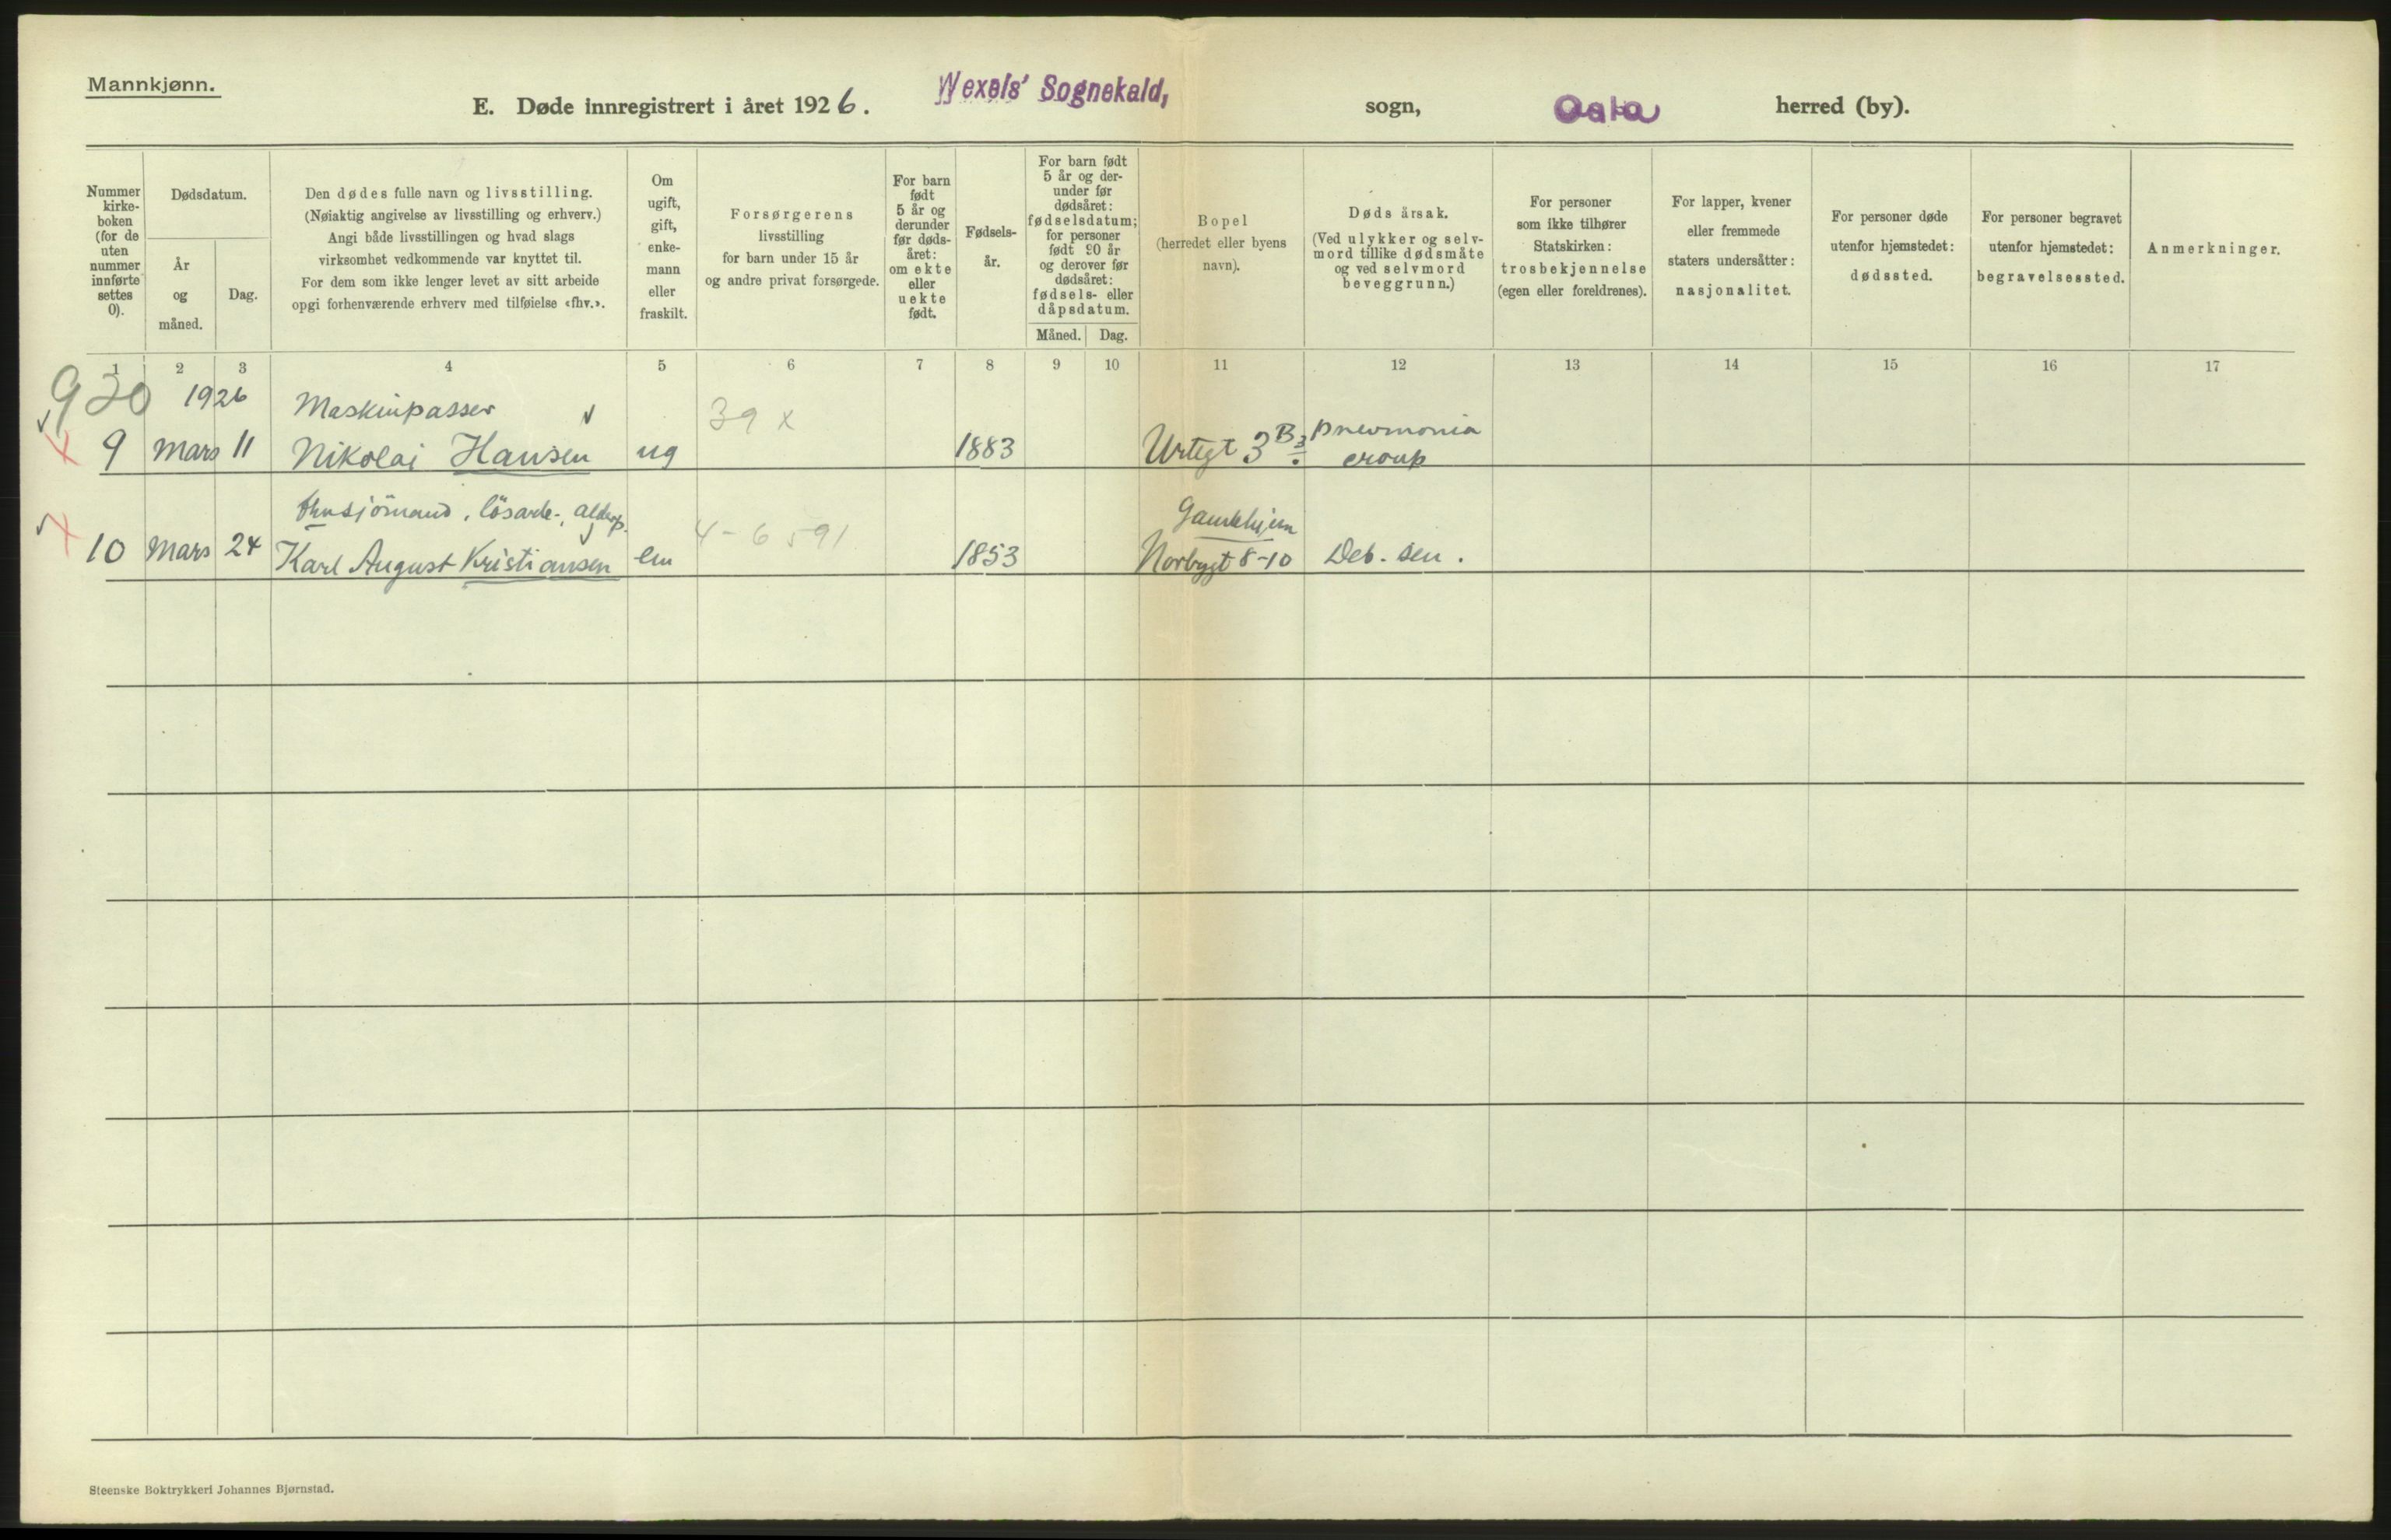 Mannkjønn.
E. Døde innregistrert i året 1926. Wexels' Sognekald, sogn, Oslo herred (by).
Nummer
kirke-
boken
(for de
uten
nummer
innførte
settes
0).
Dødsdatum.
År
og
måned.
Dag.
Den dødes fulle navn og livsstilling.
(Nøiaktig angivelse av livsstilling og erhverv.)
Angi både livsstillingen og hvad slags
virksomhet vedkommende var knyttet til.
For dem som ikke lenger levet av sitt arbeide
opgi forhenværende erhverv med tilføielse «fhv.».
Om
ugift,
gift,
enke-
mann
eller
fraskilt.
Forsørgerens
livsstilling
for barn under 15 år
og andre privat forsørgede.
For barn
født
5 år og
derunder
før døds-
året:
om ekte
eller
uekte
født.
Fødsels-
år.
For barn født
5 år og der-
under før
dødsåret:
fødselsdatum;
for personer
født 90 år
og derover før
dødsåret:
fødsels- eller
dåpsdatum.
Måned. Dag.
Bopel
(herredet eller byens
navn).
Dødsårsak.
(Ved ulykker og selv-
mord tillike dødsmåte
og ved selvmord
beveggrunn.)
For personer
som ikke tilhører
Statskirken:
trosbekjennelse
(egen eller foreldrenes).
For lapper, kvener
eller fremmede
staters undersåtter:
nasjonalitet.
For personer døde
utenfor hjemstedet:
dødssted.
For personer begravet
utenfor hjemstedet:
begravelsessted.
Anmerkninger.
1 2 3 4 5 6 7 8 9 10 11 12 13 14 15 16 17
930 1926 Maskinpasser 39 x B. 3 pneumonia
9 Mars 11 Nikolai Hansen ug 1883 Urtegt 3 croup
fhv sjömand, lösarb-, aldersp. 4-6591 Gamlehjem
10 Mars 24 Karl August Kristiansen em 1853 Norbygt 8-10 Deb. sen.
Steenske Boktrykkeri Johannes Bjørnstad.